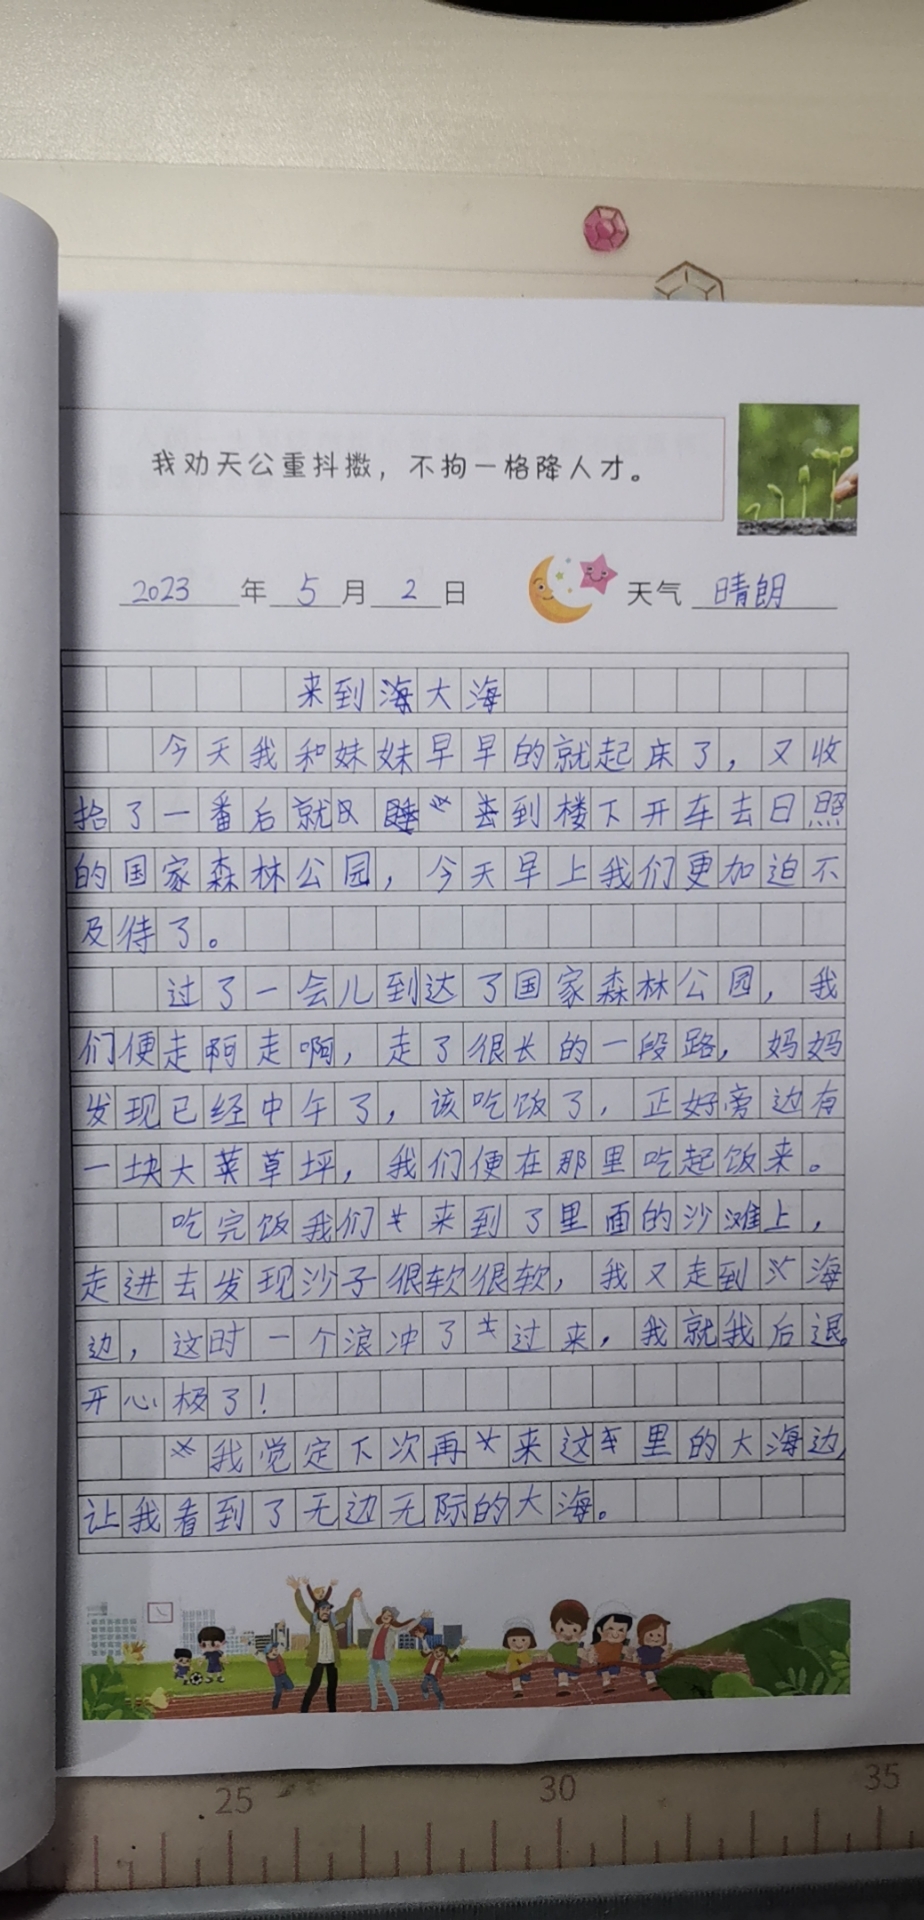 我劝天公重抖擞，不拘一格降人才。
2023年5月2日 天气 晴朗
来到大海
今天我和妹妹早早的就起床了，又收
拾了一番后就到楼下开车去日照
的国家森林公园，今天早上我们更加迫不
及待了。
过了一会儿到达了国家森林公园，我
们便走啊走啊，走了很长的一段路，妈妈
发现已经中午了，该吃饭了，正好旁边有
一块大草坪，我们便在那里吃起饭来。
吃完饭我们来到了里面的沙滩上，
走进去发现沙子很软很软，我又走到海
边，这时一个浪冲了过来，我就我后退
开心极了！
我觉定下次再来这里的大海边，
让我看到了无边无际的大海。
25 30 35